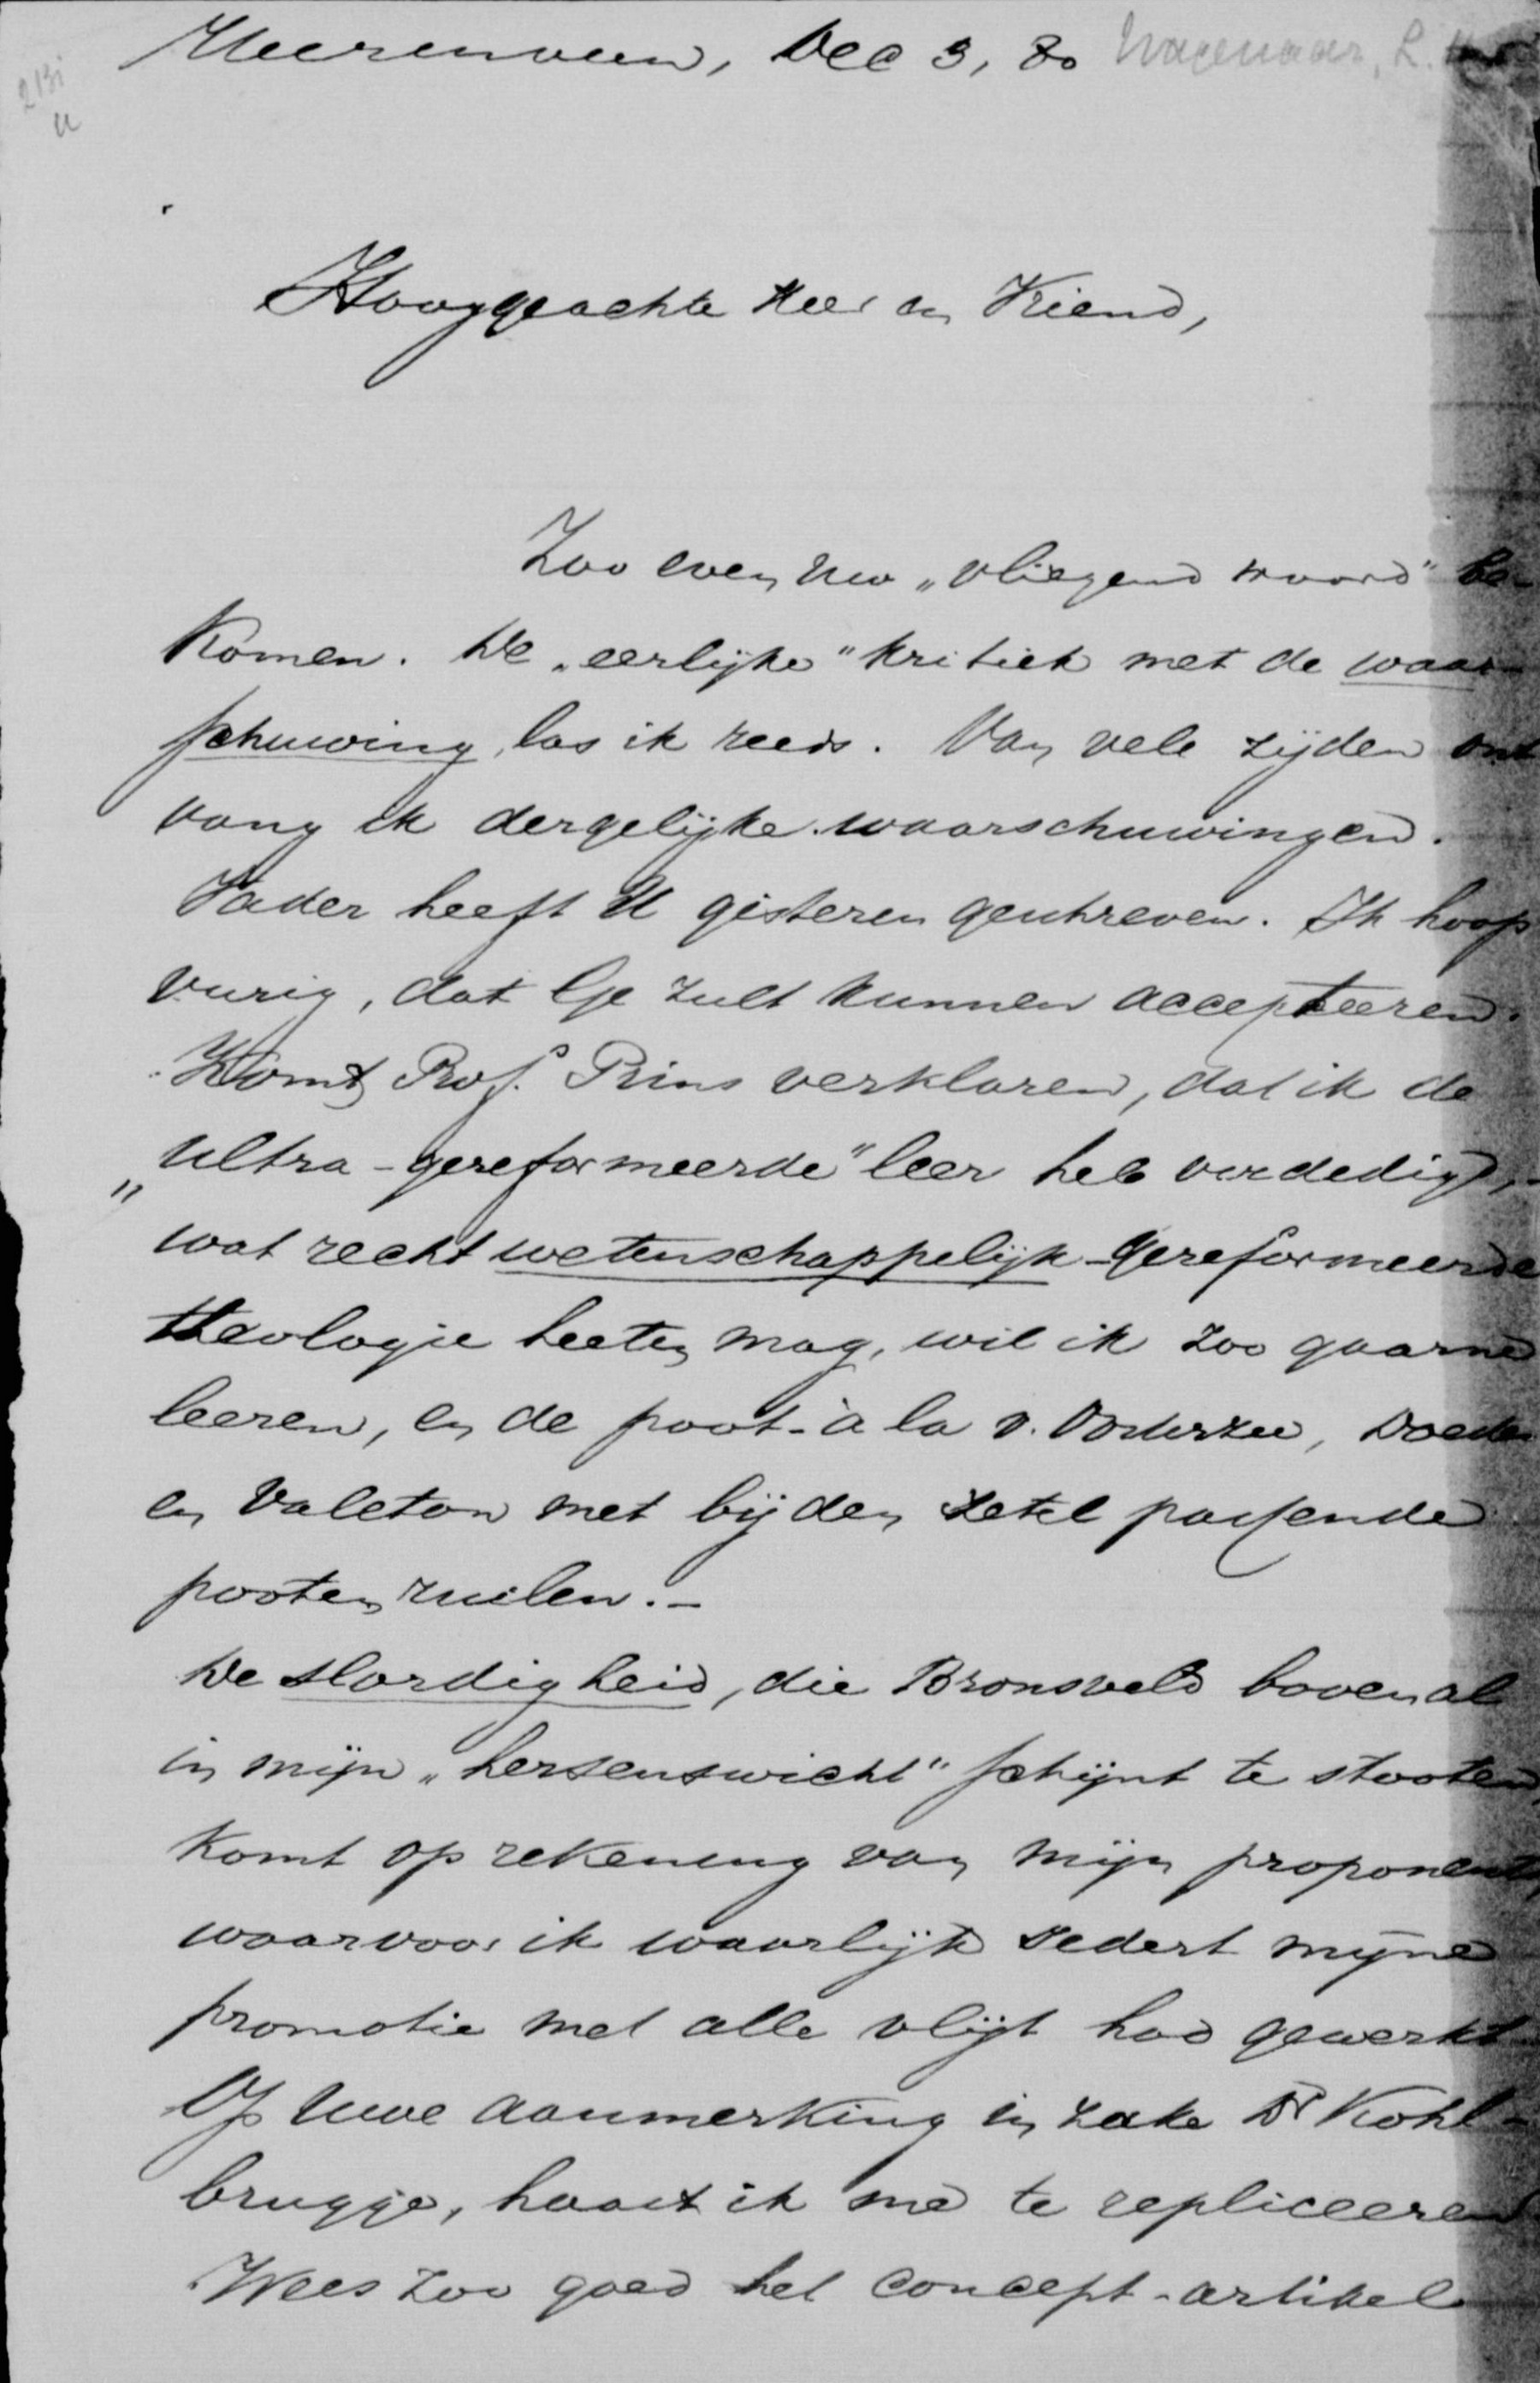 Heerenveen, Dec 3, 80 Wagenaar, L. H.
213i
u
Hooggeachte Heer en Vriend,
Zoo even uw „vliegend woord" be-
komen. De „eerlijke" kritiek met de waar-
schuwing, las ik reeds. Van vele zijden ont
vang ik dergelijke waarschuwingen.
Vader heeft U gisteren geschreven. Ik hoop
vurig, dat Ge zult kunnen accepteeren.
Komt Prof. Prins verklaren, dat ik de
„ultra-gereformeerde" leer heb verdedigd,-
wat recht wetenschappelijk-gereformeerde
theologie heeten mag, wil ik zoo gaarne
leeren, en de poot-à la v. Oosterzee, Doedes
en Valeton met bij den zetel passende
pooten ruilen.-
De slordigheid, die Bronsveld bovenal
in mijn „hersenswicht" schijnt te stooten,
komt op rekening van mijn proponents
waarvoor ik waarlijk sedert mijne
promotie met alle vlijt had gewerkt.
Op uwe aanmerking in zake Dr Kohl-
brugge, haast ik me te repliceeren
Wees zoo goed het concept-artikel